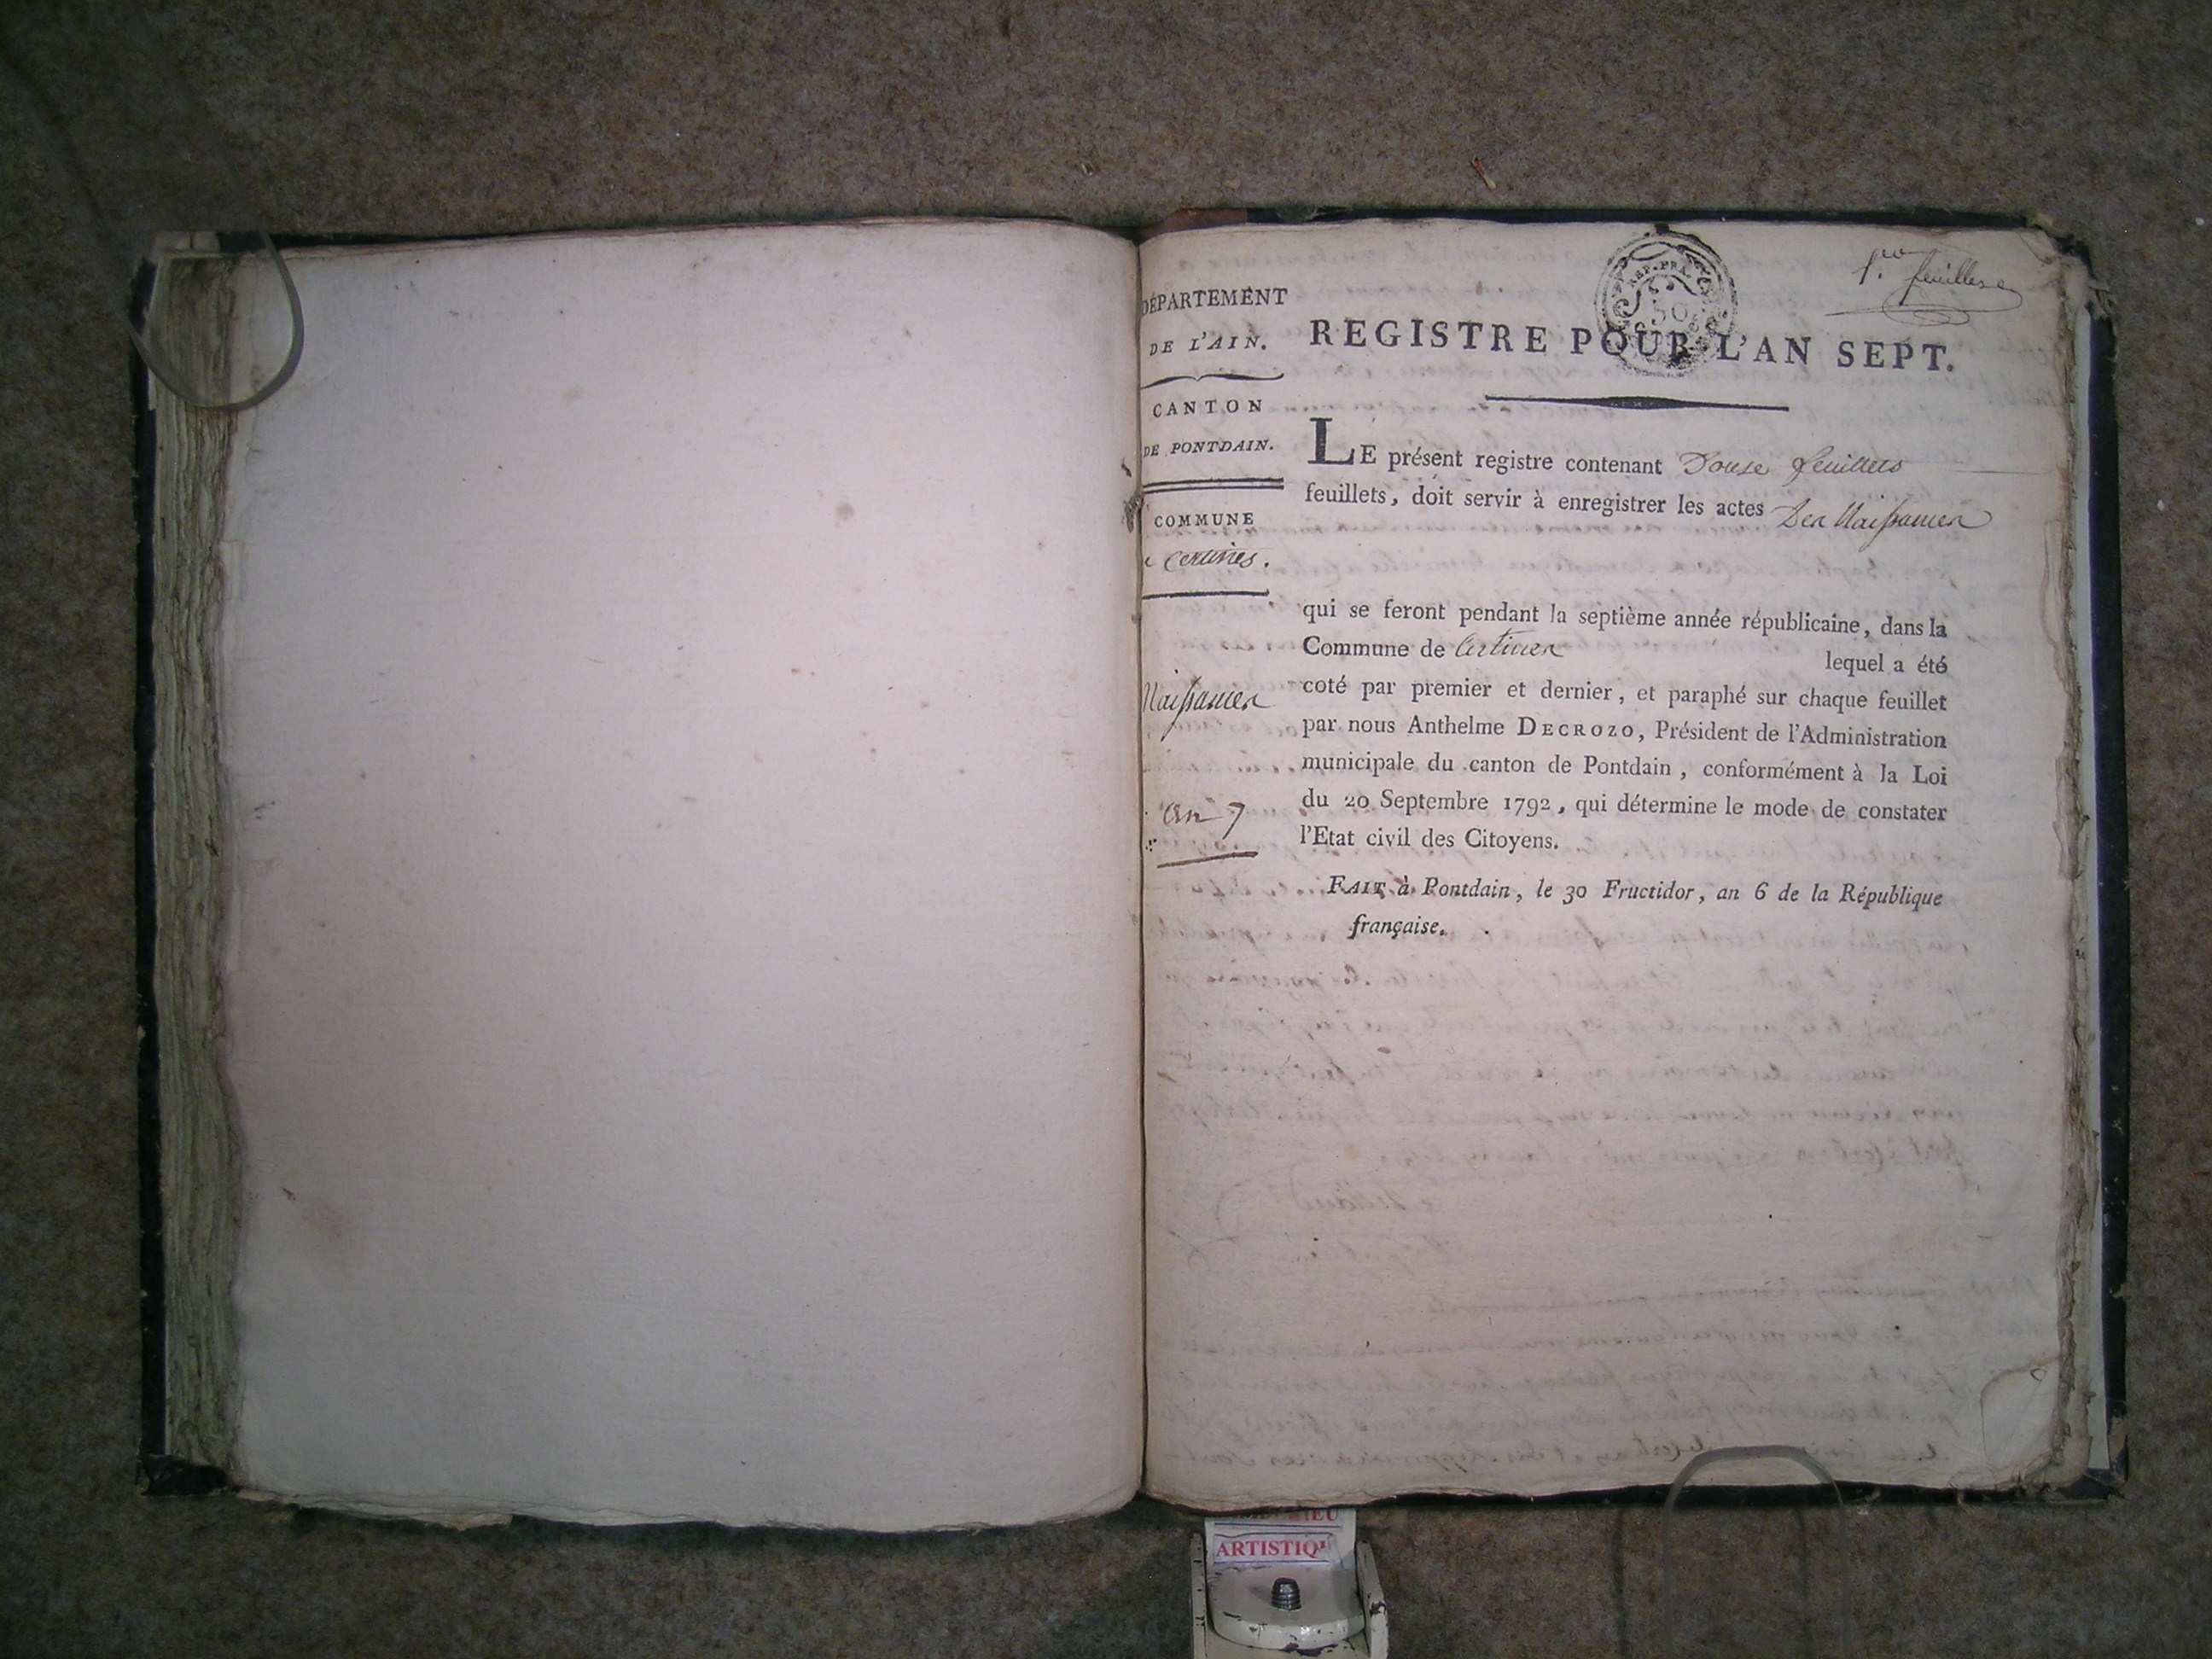 DÉPARTEMENT
DE L'AIN.
CANTON
DE PONTDAIN.
COMMUNE
Certines.
Naissances
an 7
1er feuillet
REGISTRE POUR L'AN SEPT.
LE présent registre contenant Douse feuillets
feuillets, doit servir à enregistrer les actes Des Naissances
qui se feront pendant la septième année républicaine, dans la
Commune de Certines lequel a été
coté par premier et dernier, et paraphé sur chaque feuillet
par nous Anthelme DECROZO, Président de l'Administration
municipale du canton de Pontdain, conformément à la Loi
du 20 Septembre 1792, qui détermine le mode de constater
l'Etat civil des Citoyens.
FAIT à Pontdain, le 30 Fructidor, an 6 de la République
française.
ARTISTIQ